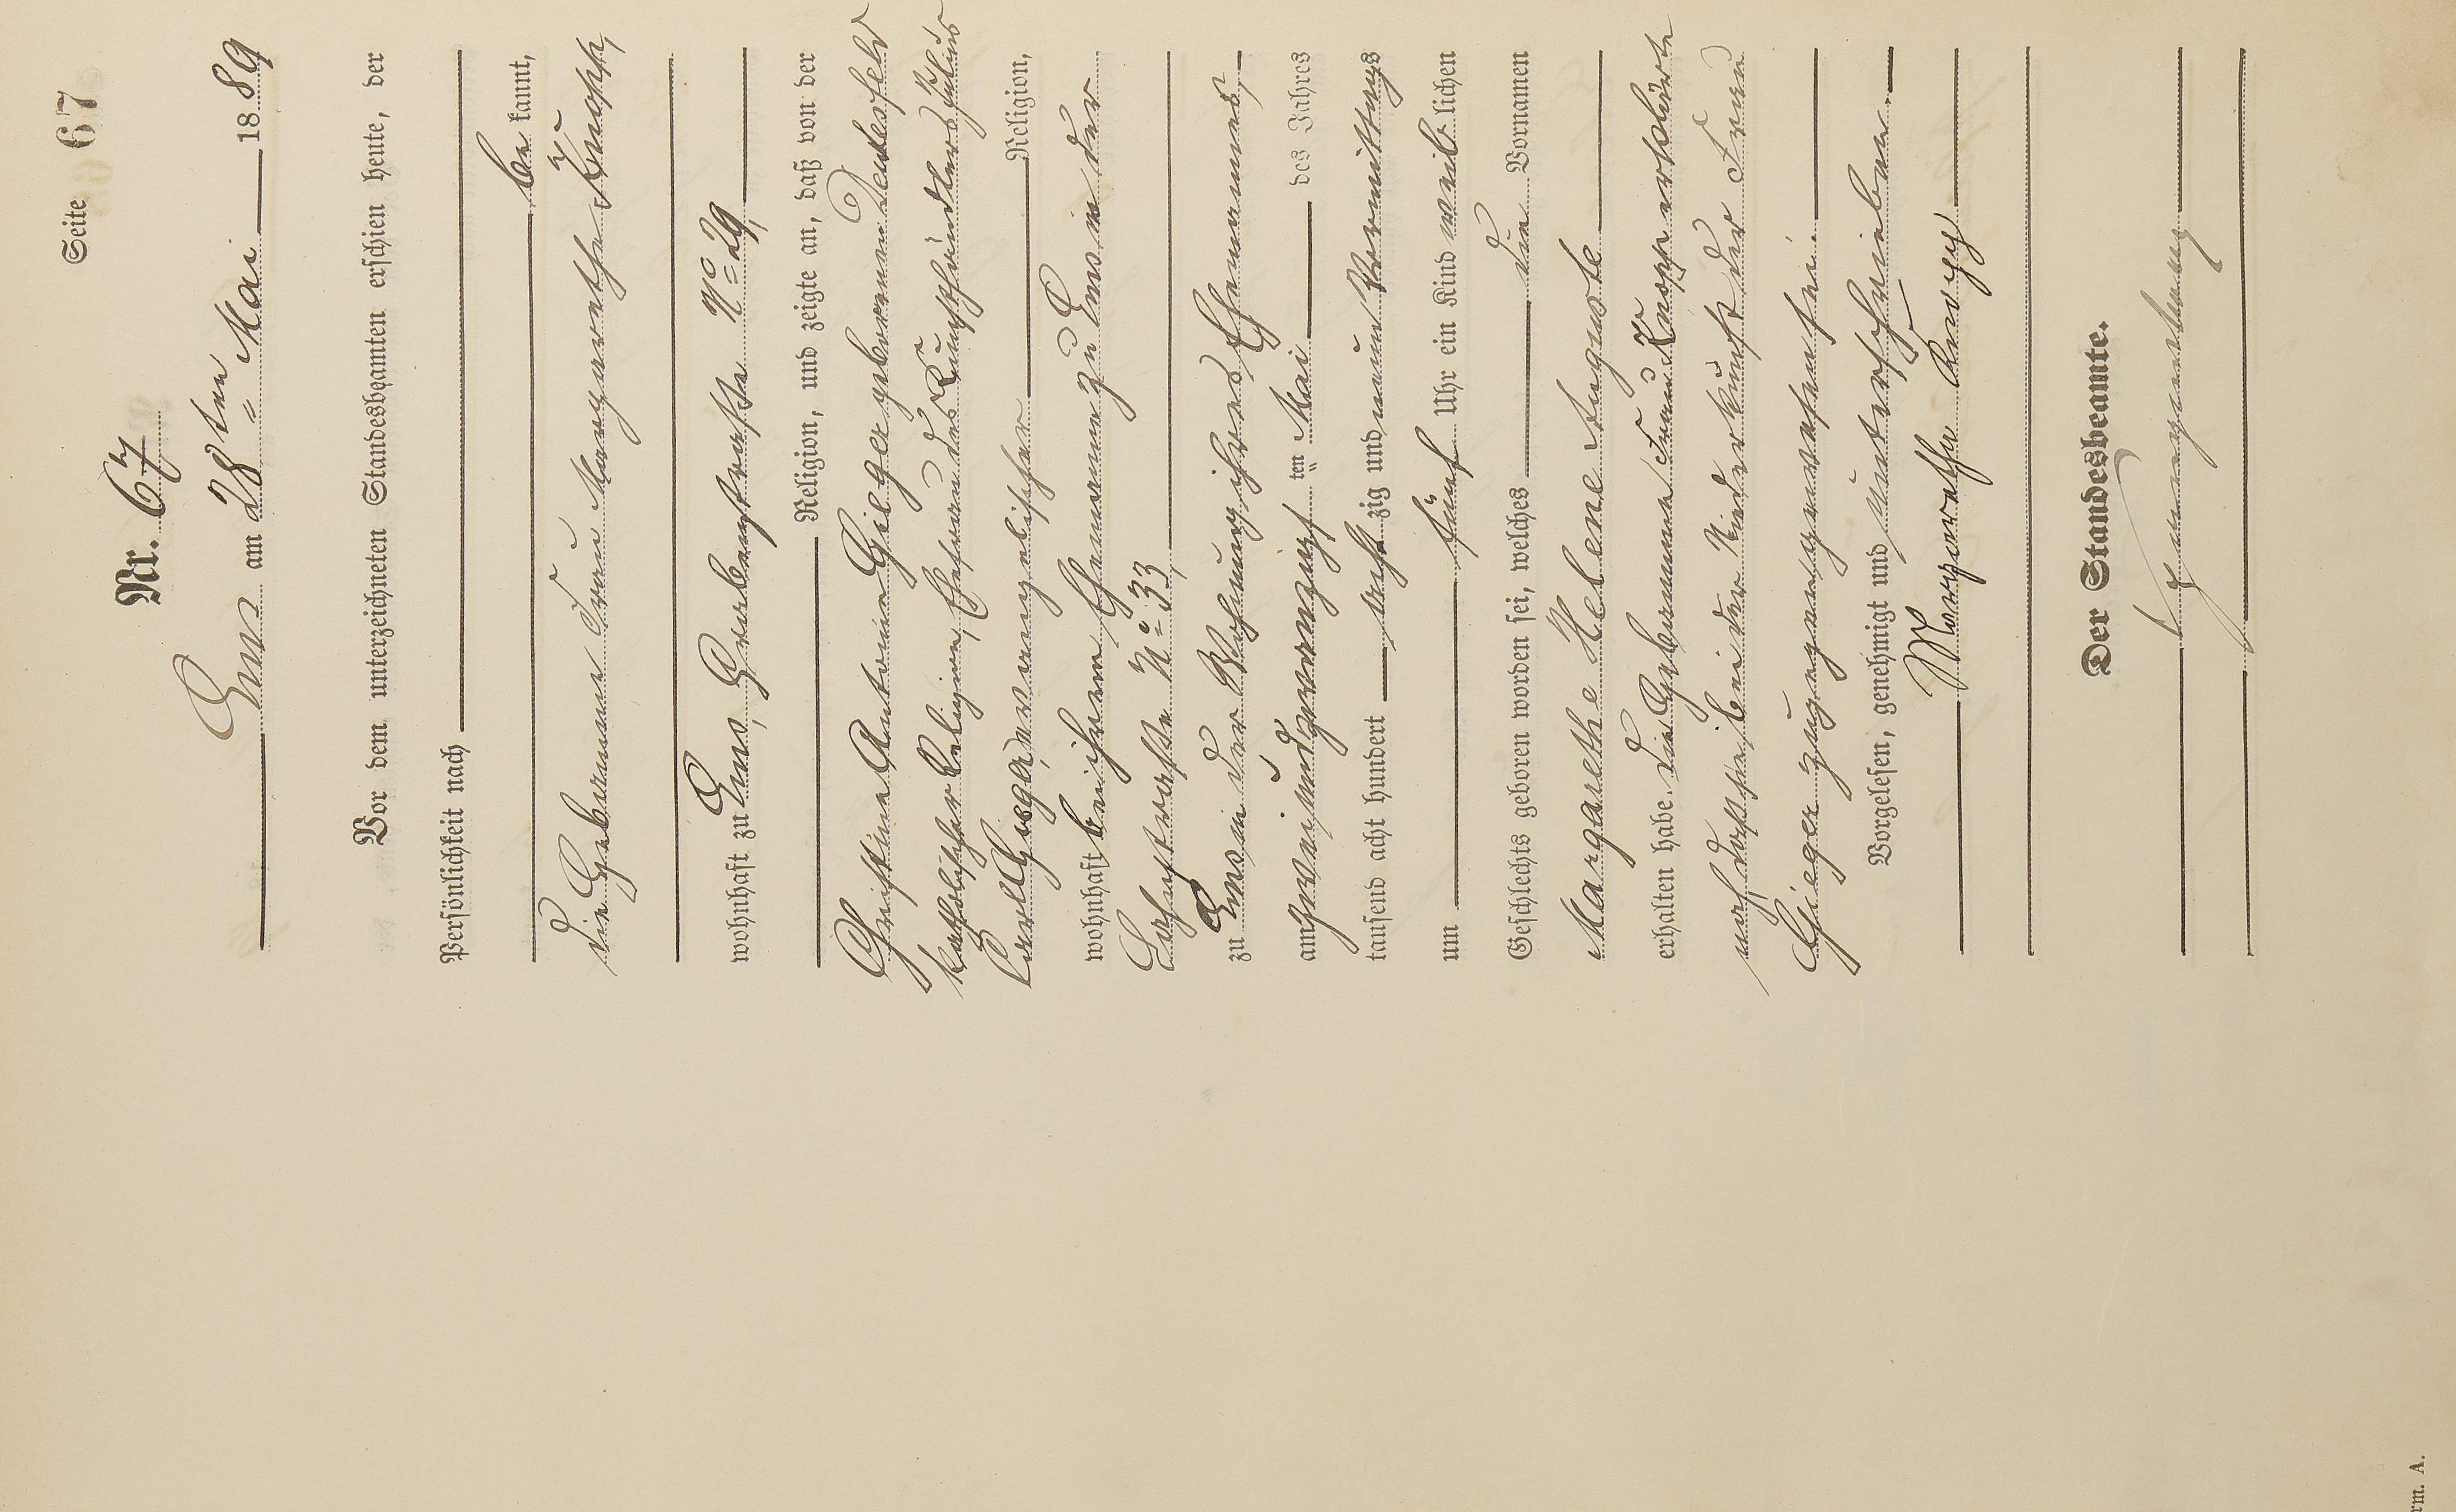 Seite 67
Nr. 67
Ems am 28ten Mai 1889
Vor dem unterzeichneten Standesbeamten erschien heute, der
Persönlichkeit nach
bekannt,
die Hebamme Frau Margarethe Knopp,
wohnhaft zu Ems, Grabenstraße No 29,
Religion, und zeigte an, daß von der
Christine Antonie Gieger geborenen Deudesfeld
katholischer Religion, Ehefrau des Kunsthändlers Julius
Carl Gieger, evangelischer Religion,
wohnhaft bei ihrem Ehemanne zu Ems in der
Lahnstraße No 33,
zu Ems in der Wohnung ihres Ehemannes,
am zweiundzwanzigsten Mai des Jahres
tausend acht hundert achtzig und neun Vormittags
um fünf Uhr ein Kind weiblichen
Geschlechts geboren worden sei, welches die Vornamen
Margarethe Helene Auguste
erhalten habe. Die Hebamme Frau Knopp erklärte
noch, daß sie bei der Niederkunft der Frau
Gieger zugegen gewesen sei.
Vorgelesen, genehmigt und unterschrieben.
Margarethe Knopp
Der Standesbeamte.
rm. A.